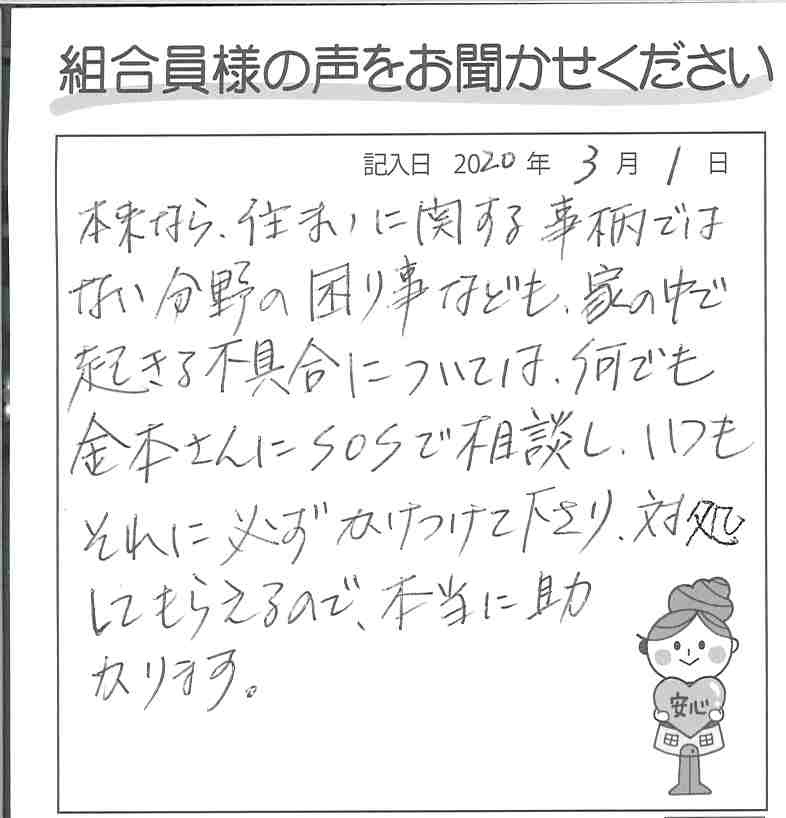 組合員様の声をお聞かせください
記入日 2020年 3月 1日
本来なら、住まいに関する事柄では
ない分野の困り事なども、家の中で
起きる不具合については、何でも
金本さんにSOSで相談し、いつも
それに必ずかけつけて下さり、対処
してもらえるので、本当に助
かります。
安心